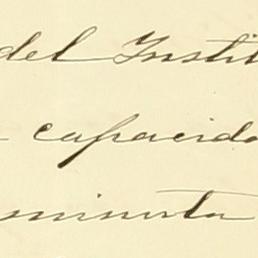 del Instit
capacida
minuta